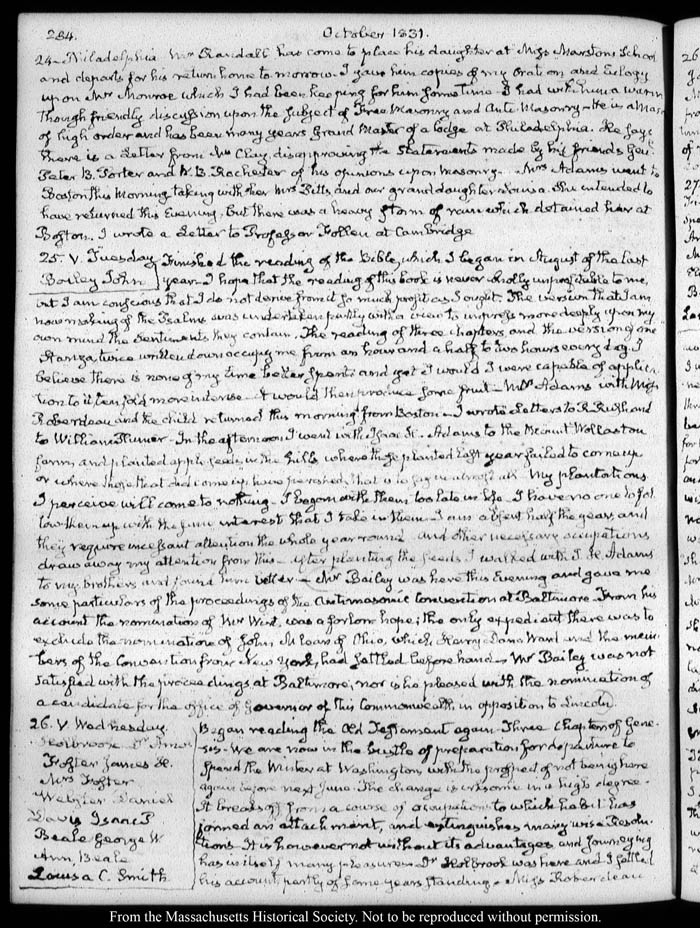 284. October 1831.
24. Philadelphia Mr Randall has come to place his daughter at Miss Marston's School
and departs for his return home to morrow. I gave him copies of my Oration and Eulogy
upon Mr Monroe which I had been keeping for him some time. I had with him a warm
though friendly discussion upon the subject of Free Masonry and Anti-Masonry. He is a Mason
of high order and has been many years Grand Master of a Lodge at Philadelphia. He says
there is a Letter from Mr Clay, disapproving the statements made by his friends Genl
Peter B. Porter and W. B. Rochester of his opinions upon Masonry. Mrs Adams went to
Boston this Morning taking with her Mrs and our granddaughter Louisa. She intended to
have returned this Evening, but there was a heavy storm of rain which detained her at
Boston. I wrote a Letter to Professor Follen at Cambridge
25. V. Tuesday. Finished the reading of the Bible, which I began in August of the last
Bailey John year. I hope that the reading of this book is never wholly unprofitable to me,
but I am conscious that I do not derive from it so much profit as I ought. The version that I am
now making of the Psalms was undertaken partly with a view to impress more deeply upon my
own mind the sentiments they contain. The reading of three chapters and the version of one
stanza twice written down occupy me from an hour and a half to two hours every day. I
believe there is none of my time better spent and yet I would I were capable of applica-
tion to it ten fold more intense. It would then produce some fruit. Mrs Adams with Miss
Roberdeau and the child returned this morning from Boston. I wrote Letters to R. Rush and
to William Plumer. In the afternoon I went with Isaac H. Adams to the Mount Wollaston
farm and planted apple seeds in the hills where those planted last year failed to come up
or where those that did come up, have perished, that is to say in almost all. My plantations
I perceive will come to nothing. I began with them too late in life. I have no one to fol-
low them up with the same interest that I take in them. I am absent half the year, and
they require incessant attention the whole year round and other necessary occupations
draw away my attention from this. After planting the seeds I walked with I. H. Adams
to my brother's and found him better. Mr Bailey was here this Evening and gave me
some particulars of the proceedings of the Antimasonic Convention at Baltimore. From his
account the nomination of Mr Wirt, was a forlorn hope; the only expedient there was to
exclude the nomination of John McLean of Ohio, which Harry Dana Ward and the mem-
bers of the Convention from New York, had settled before hand. Mr Bailey was not
satisfied with the proceedings at Baltimore, nor is he pleased with the nomination of
a candidate for the office of Governor of this Commonwealth in opposition to Lincoln.
26. V. Wednesday. Began reading the Old Testament again. Three Chapters of Gene-
Holbrook Dr Amos sis. We are now in the bustle of preparation for departure to
Foster James H. spend the Winter at Washington, with the prospect of not being here
Mrs Foster again before next June. The change is irksome in a high degree.
Webster Daniel It breaks off from a course of occupation to which habit has
Davis Isaac P. formed an attachment, and extinguishes many wise Resolu-
Beale George W tions. It is however not without its advantages and journeying
Ann Beale has in itself many pleasures. Dr Holbrook was here and I settled
Louisa C. Smith his account, partly of some years standing. Miss Roberdeau
From the Massachusetts Historical Society. Not to be reproduced without permission.